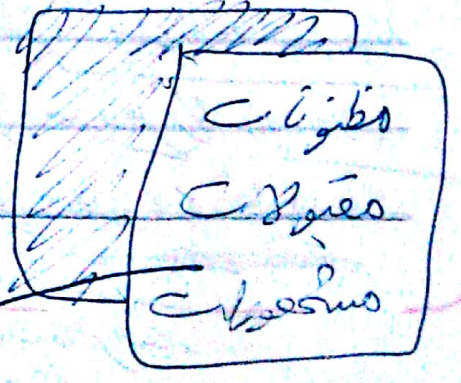 مظنونات
مقبولات
مشهورات